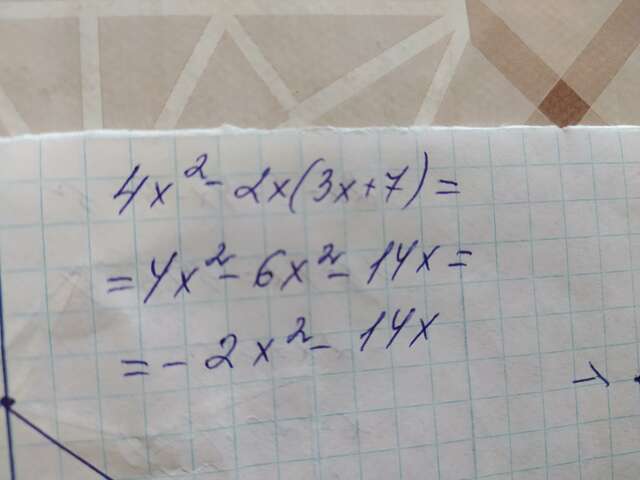 4x² - 2x(3x+7) =
= 4x² - 6x² - 14x =
= - 2x² - 14x